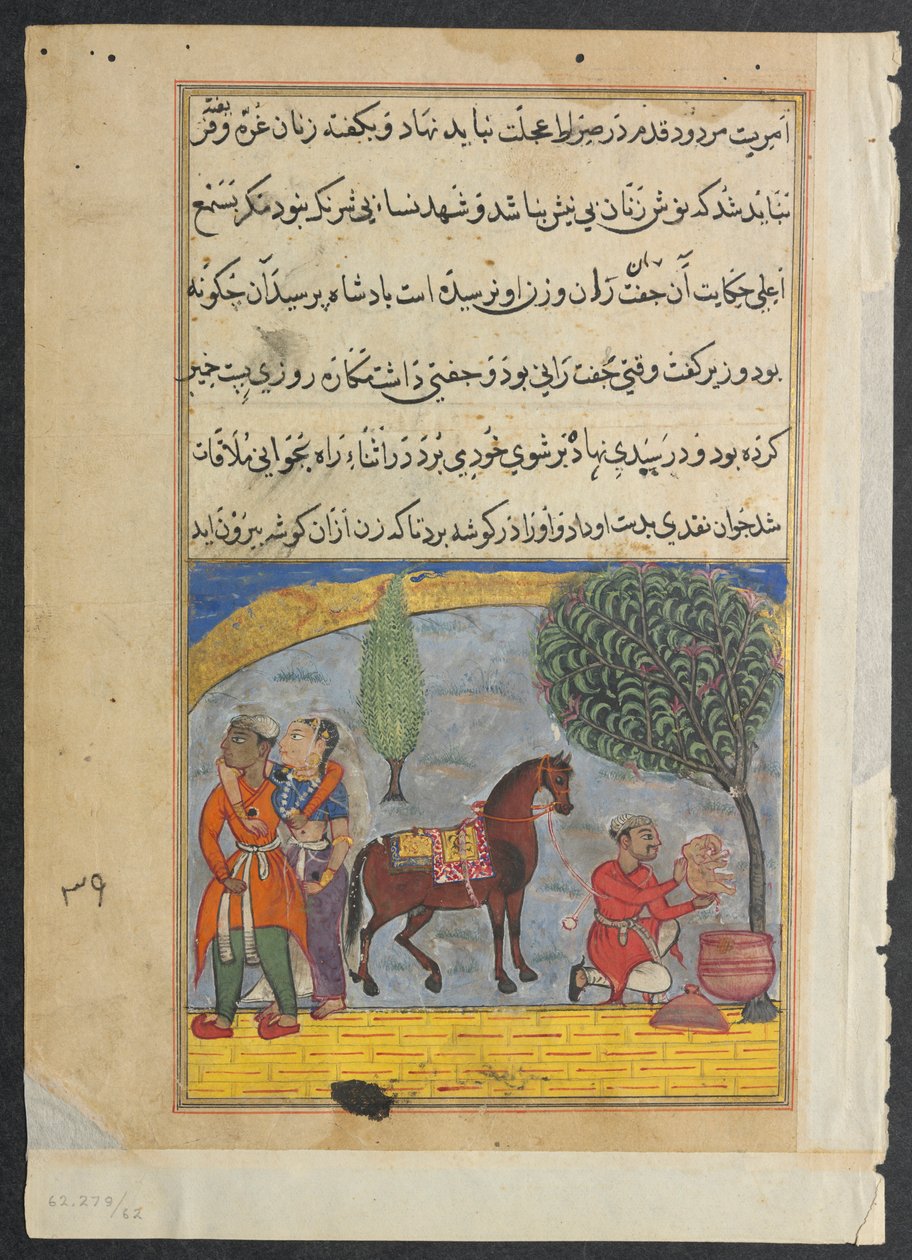 امریت مردود قدم در صراط عجلت نباید نهاد و بکفته زنان غره و فریفته
نباید شد که نوش زنان بی نیش نباشد و شهد نساء بی شرنک نبود مکر بسمع
اعلی حکایت آن جفت ران وزن او نرسیده است بادشاه پرسید آن چکونه
بود وزیر کفت وقتی جفت رانی بود و جفتی داشت مکاره روزی
کرده بود و در سبدی نهاده بر شوی خود می برد در اثناء راه بجوانی ملاقات
شد جوان نقدی بدست او داد و او را در کوشه برد تا که زن ازان کوشه بیرون اید
۳۹
62.279/62